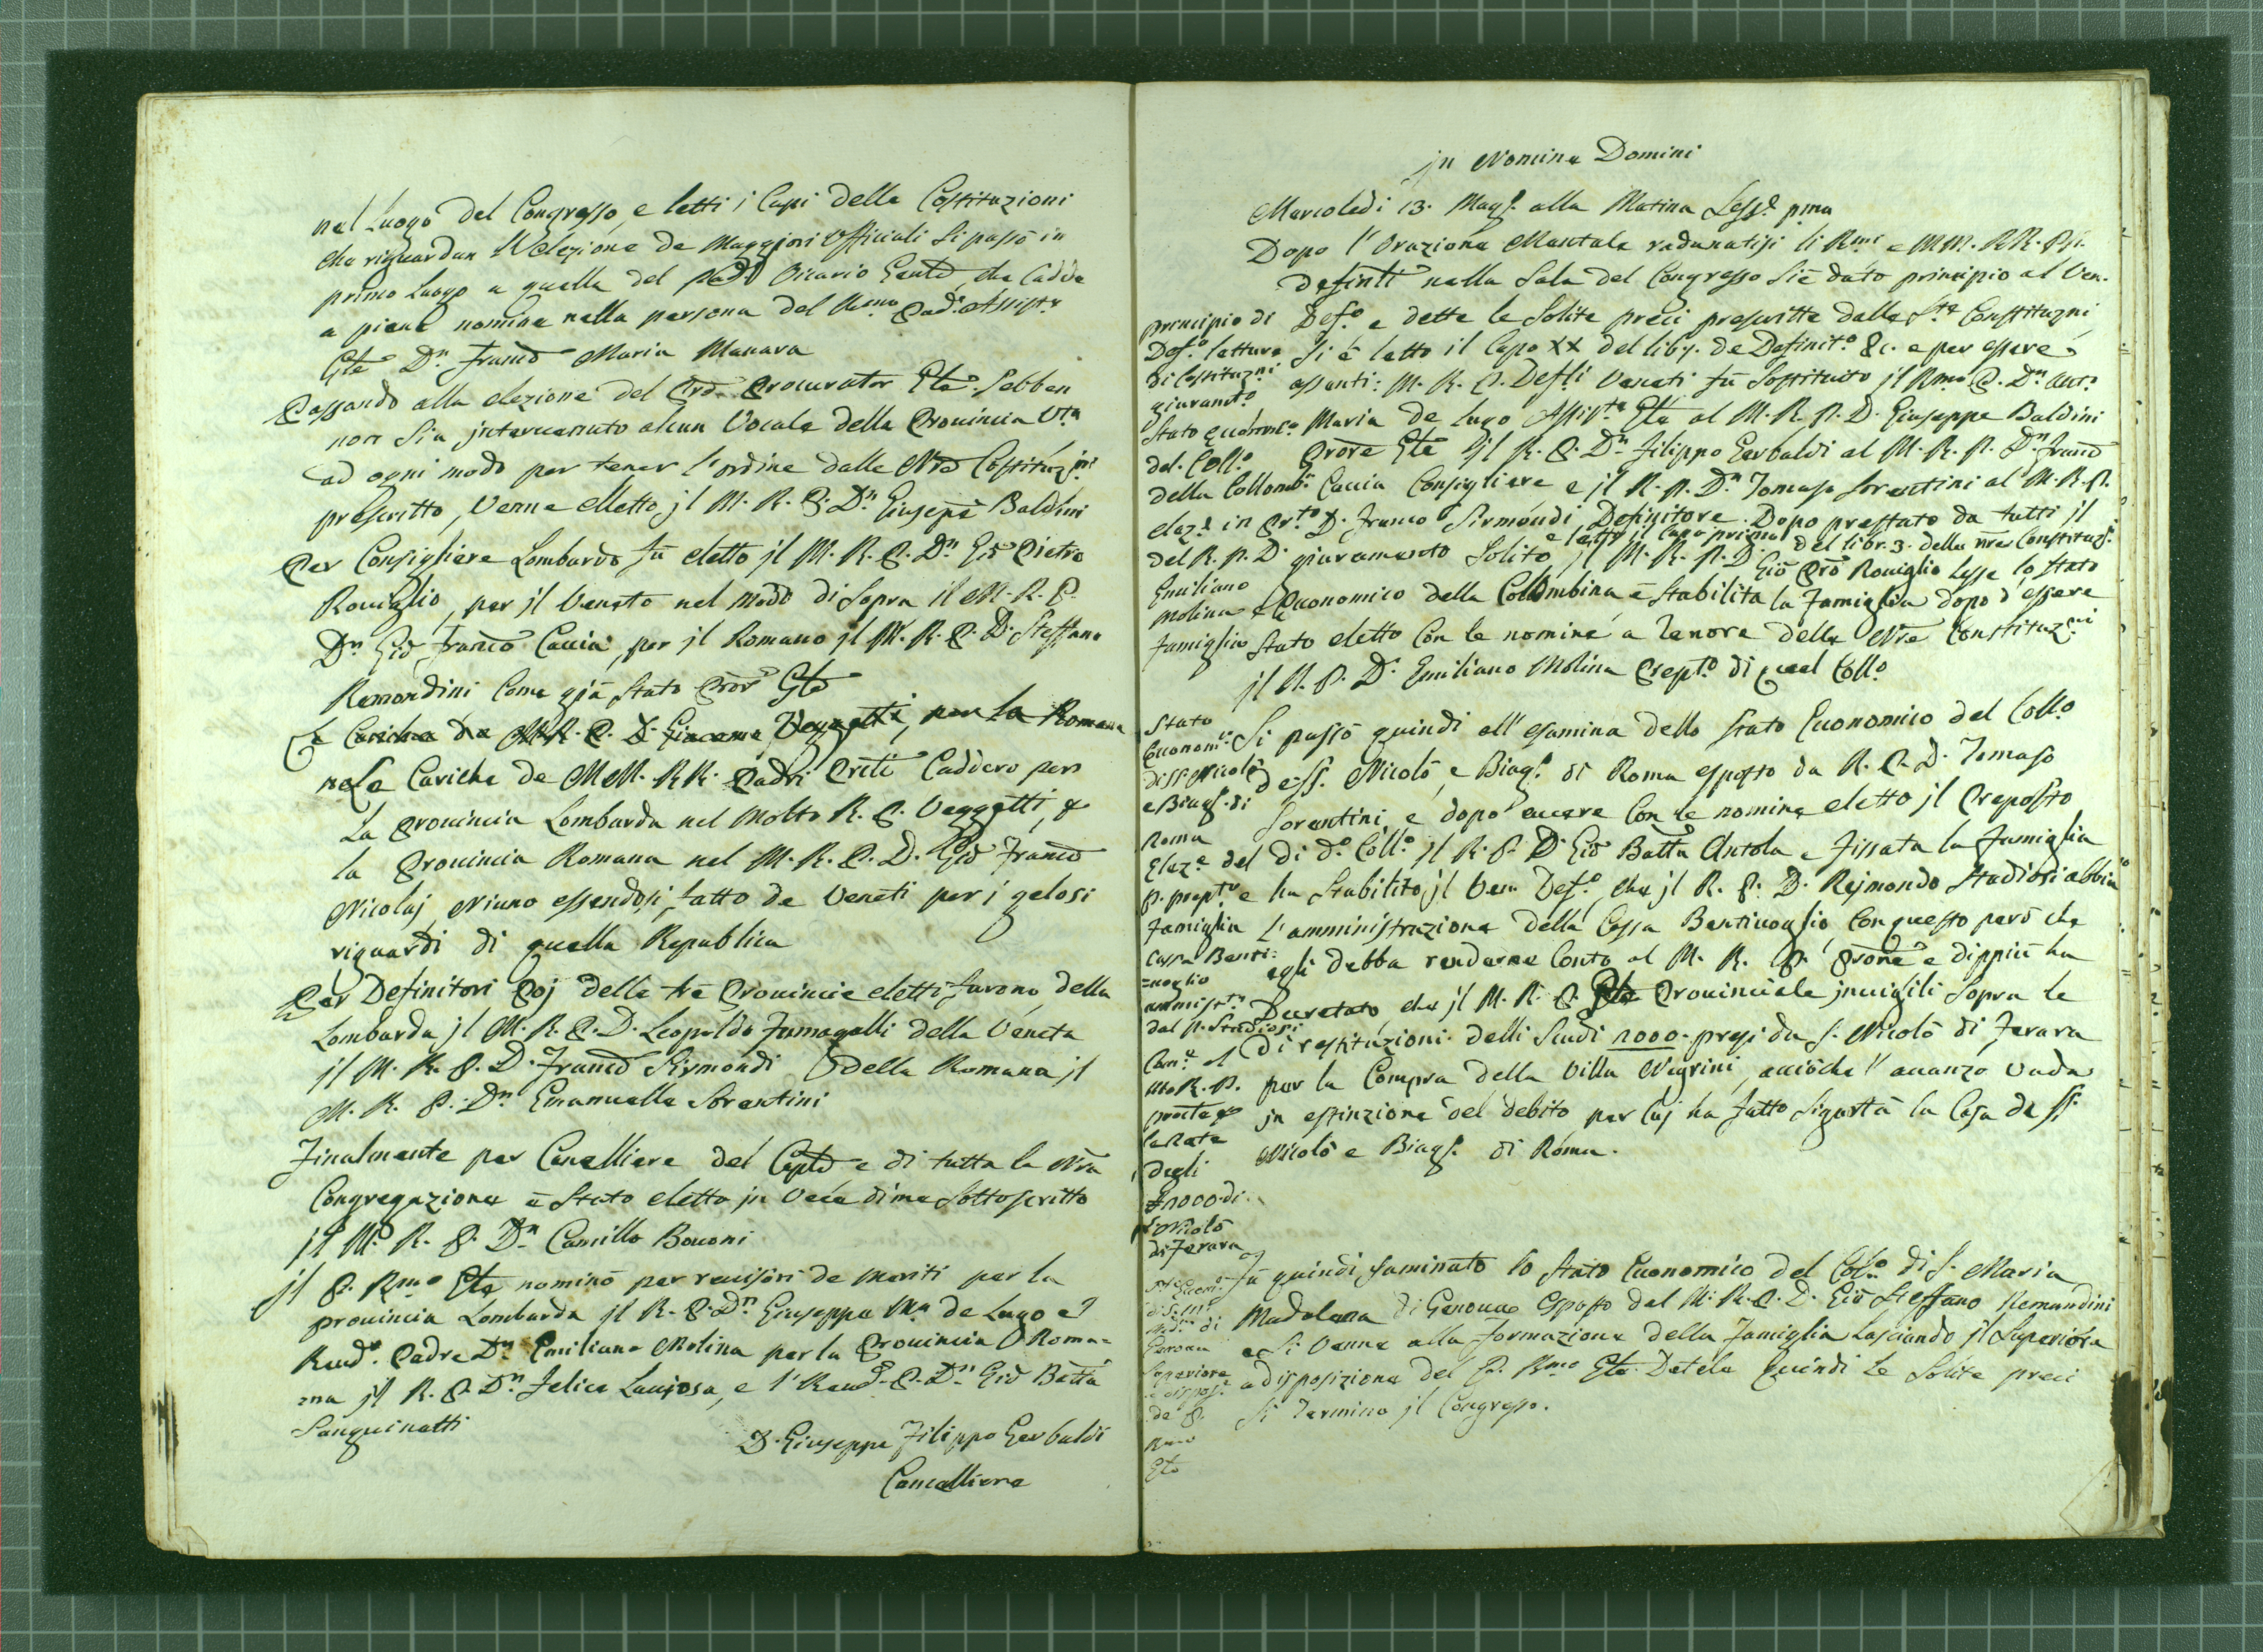 nel Luogo del Congresso, e letti i Capi delle Costituzioni
che riguardan l'elezione de Maggiori Officiali si passò in
primo luogo a quella del Vicario che cadde
a piene nomine nella persona del Rmo Pad.
Gle Dn Franco Maria Manara
Passando alla elezione del Procurator Gle. Sebben
non sia intervenuto alcun Vocale della Provincia Vta
ad ogni modo per tener l'ordine dalle Nre
prescritto, Venne eletto jl M. R. P. Dn Giuseppe Baldini
Per Consigliere Lombardo fù eletto jl M. R. P. Dn Gio Pietro
Roviglio, per jl Veneto nel modo di sopra il M. R. P.
Dn Gio Franco Caccia, per jl Romano jl M. R. P. D. Steffano
Remondini come già stato Gle
Le Cariche de M.R. P. D. Giacomo Vezzetti, per la Romana
nele Cariche de MM. RR. Padri Caddero per
la Provincia Lombarda nel Molto R. P. Veggetti, &
la Provincia Romana nel M. R. P. D. Gio Franco
Nicolaj, Niuno essendosi fatto de Veneti per i gelosi
riguardi di quella Republica
Per Definitori poj delle tre Provincie eletti furono della
Lombarda jl M. R. P. D. Leopoldo Fumagalli della Veneta
jl M. R. P. D. Franco Sirmondi della Romana jl
M. R. P. Dn Emanuelle Sorentini
Finalmente per Cancelliere del Caplo e di tutta la Nra
Congregazione è stato eletto in vece di me sottoscritto
jl M. R. P. Dn Camillo Bovoni
jl P. Rmo Gle nominò per revisori de meriti per la
provincia Lombarda jl R. P. Dn Giuseppe Ma de Lugo e l
Rend. Padre Dn Emiliano Molina per la Provincia Roma=
=na jl R. P. Dn Felice e l'Rend. P. Dn Gio Batta
Sanguinetti
D. Giuseppe Filippo Gerbaldi
Cancelliere
jn Nomine Domini
Mercoledi 13. Magg. alla Matina Sess.e pma
Dopo l'Orazione Mentale radunatisi li Rmi e MM. RR. PP.
nella Sala del Congresso si è dato principio al Ven.
Def.o e dette le solite preci prescritte dalle Constituzni
si è letto il Capo XX del lib. de Definit.o &c. e per essere
assenti: M. R. P. Def.li Veneti fù sostituito jl Rmo P. Dn Ant.
Maria de Lugo Assist.te Gle al M. R. P. D. Giuseppe Baldini
Prore Gle jl R. P. Dn Filippo Gerbaldi al M. R. P. Dn Franco
Caccia Consigliere e jl R. P. Dn Tomaso Sorentini al M. R. P.
D. Franco Sirmondi Definitore. Dopo prestato da tutti jl
e letto il Capo primo del libr. 3. delle nre Constituz.
giuramento solito jl M. R. P. D Gio Pro Roviglio lesse lo stato
Economico della Colombina è stabilita la Famiglia dopo d'essere
stato eletto con le nomine a tenore delle Nre Constituz.ni
jl R. P. D. Emiliano Molina Prepto di quel Coll.o
principio di
Def.o letture
di Costituzni
giuramto
Stato
del Coll.o
della Colomb.
elez.e in
del R. P. D.
Emiliano
Molina e
famiglia
Si passò quindi all'esamina dello stato Economico del Coll.o
de SS. Nicolò, e Biag.o di Roma esposto da R. P. D. Tomaso
Sorentini, e dopo avere con le nomine eletto jl Preposto
di d.o Coll.o jl R. P. D. Gio Batta Antola e fissata la Famiglia
e ha stabilito jl Ven. Def.o, che jl R. P. D. Rejmondo Stadiosi abbia
l'amministrazione della Cassa Bentivoglio, con questo però che
egli debba renderne conto al M. R. P. Prore e dippiù ha
Decretato che jl M. R. P. Gle Provinciale invigili sopra le
di restituzioni delli scudi 1000. presi da S. Nicolò di Ferara
per la Compra della Villa Negrini, acciòche l'avanzo vada
in estinzione del debito per cuj ha fatto sigurtà la Casa de SS.
Nicolò e Biag.o di Roma.
Stato
Economi.
di SS Nicolò
e Biag. di
Roma
Elez.e del
P. prept.o
Famiglia
Cassa Benti=
=voglio
dal P. Stadiosi
le Rate
degli
1000 di
S. Nicolò
di Ferara
Fù quindi esaminato lo stato Economico del Coll.o di S. Maria
Madalena di Genova esposto dal M. R. P. D. Gio Steffano Remondini
e si venne alla formazione della Famiglia lasciando jl Superiore
a disposizione del P. Rmo Gle. Dette le quindi le solite preci
si terminò jl Congresso.
Genova
Superiore
a dispos.e
de P.
Rmo
Gle